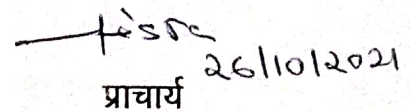 26/10/2021
प्राचार्य